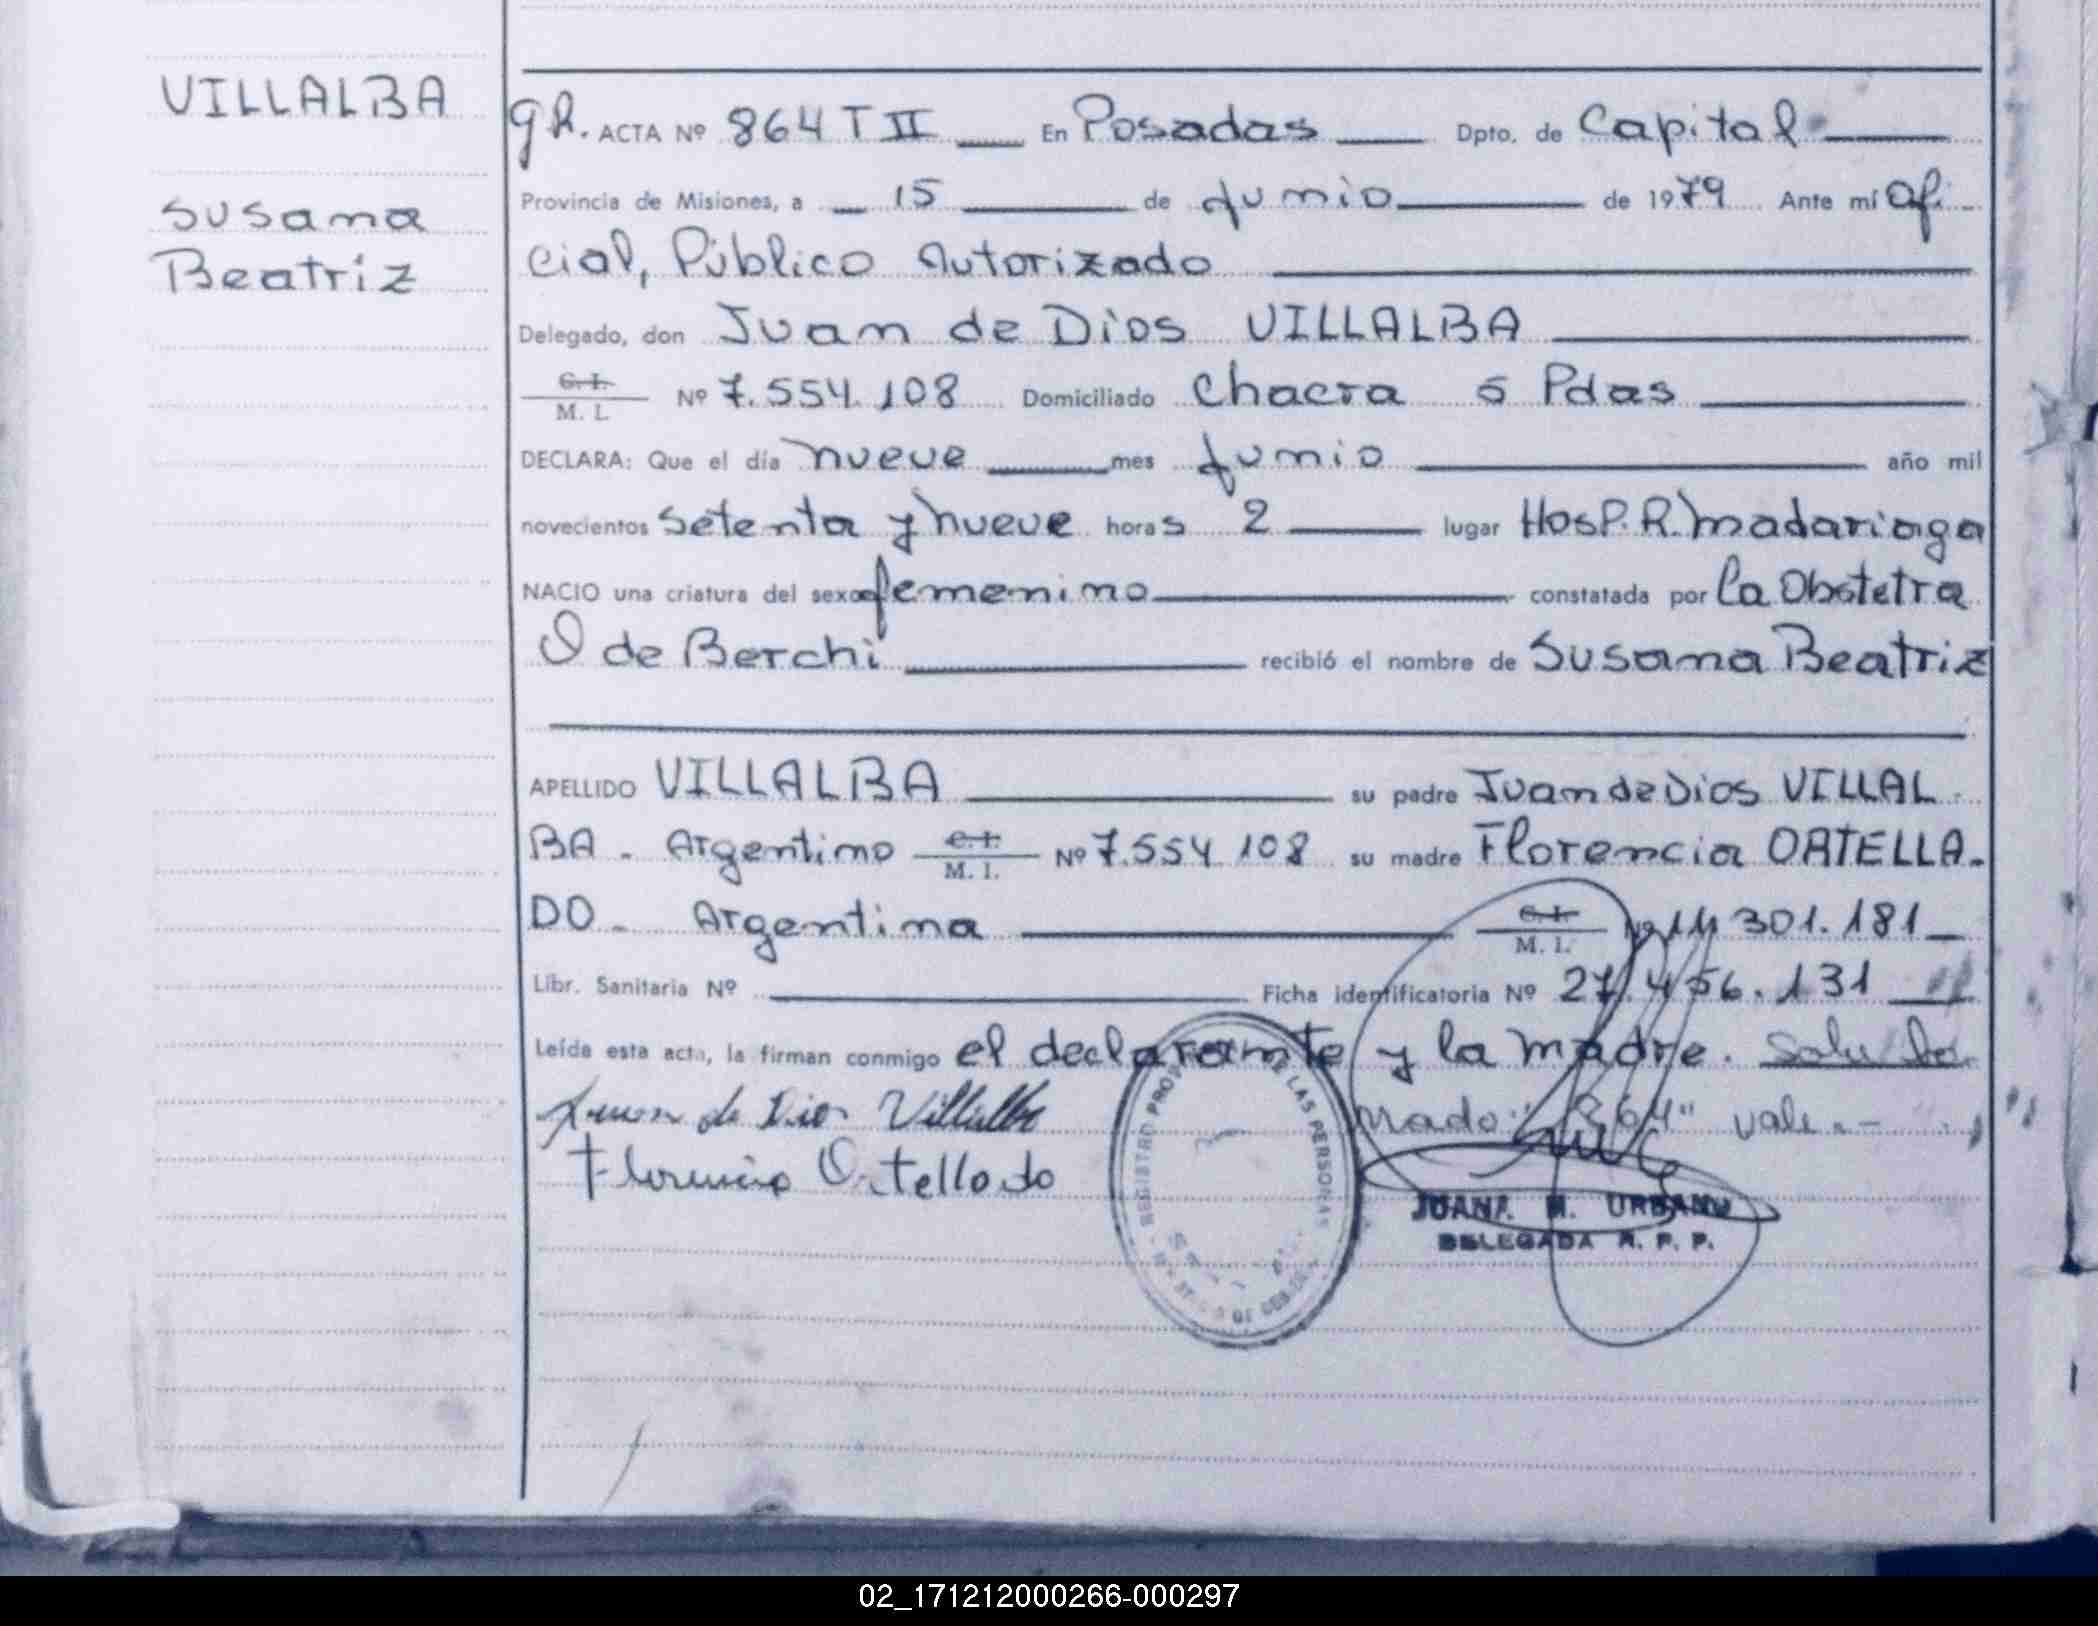 VILLALBA
Susana
Beatriz
gR. ACTA Nº 864 T II En Posadas Dpto. de Capital
Provincia de Misiones, a 15 de Junio de 1979 Ante mí Ofi
cial, Público Autorizado
Delegado, don Juan de Dios VILLALBA
C. I. M. I. Nº 7.554.108 Domiciliado Chacra 5 Pdas
DECLARA: Que el día nueve mes Junio año mil
novecientos setenta y nueve horas 2 lugar Hosp. R. Madariaga
NACIO una criatura del sexo femenino constatada por la Obstetra
O de Berchi recibió el nombre de Susana Beatriz
APELLIDO VILLALBA su padre Juan de Dios VILLAL
BA - Argentino C. I. M. I. Nº 7.554.108 su madre Florencia ORTELLA-
DO - Argentina C. I. M. I. Nº 14 301.181
Libr. Sanitaria Nº Ficha identificatoria Nº 27.456.131
Leída esta acta, la firman conmigo el declarante y la madre.
"864" vale.-
Juan de Dios Villalba
Florencia Ortellado
REGISTRO LAS PERSONAS
JUANA M. URBANO
DELEGADA R. P. P.
02_171212000266-000297